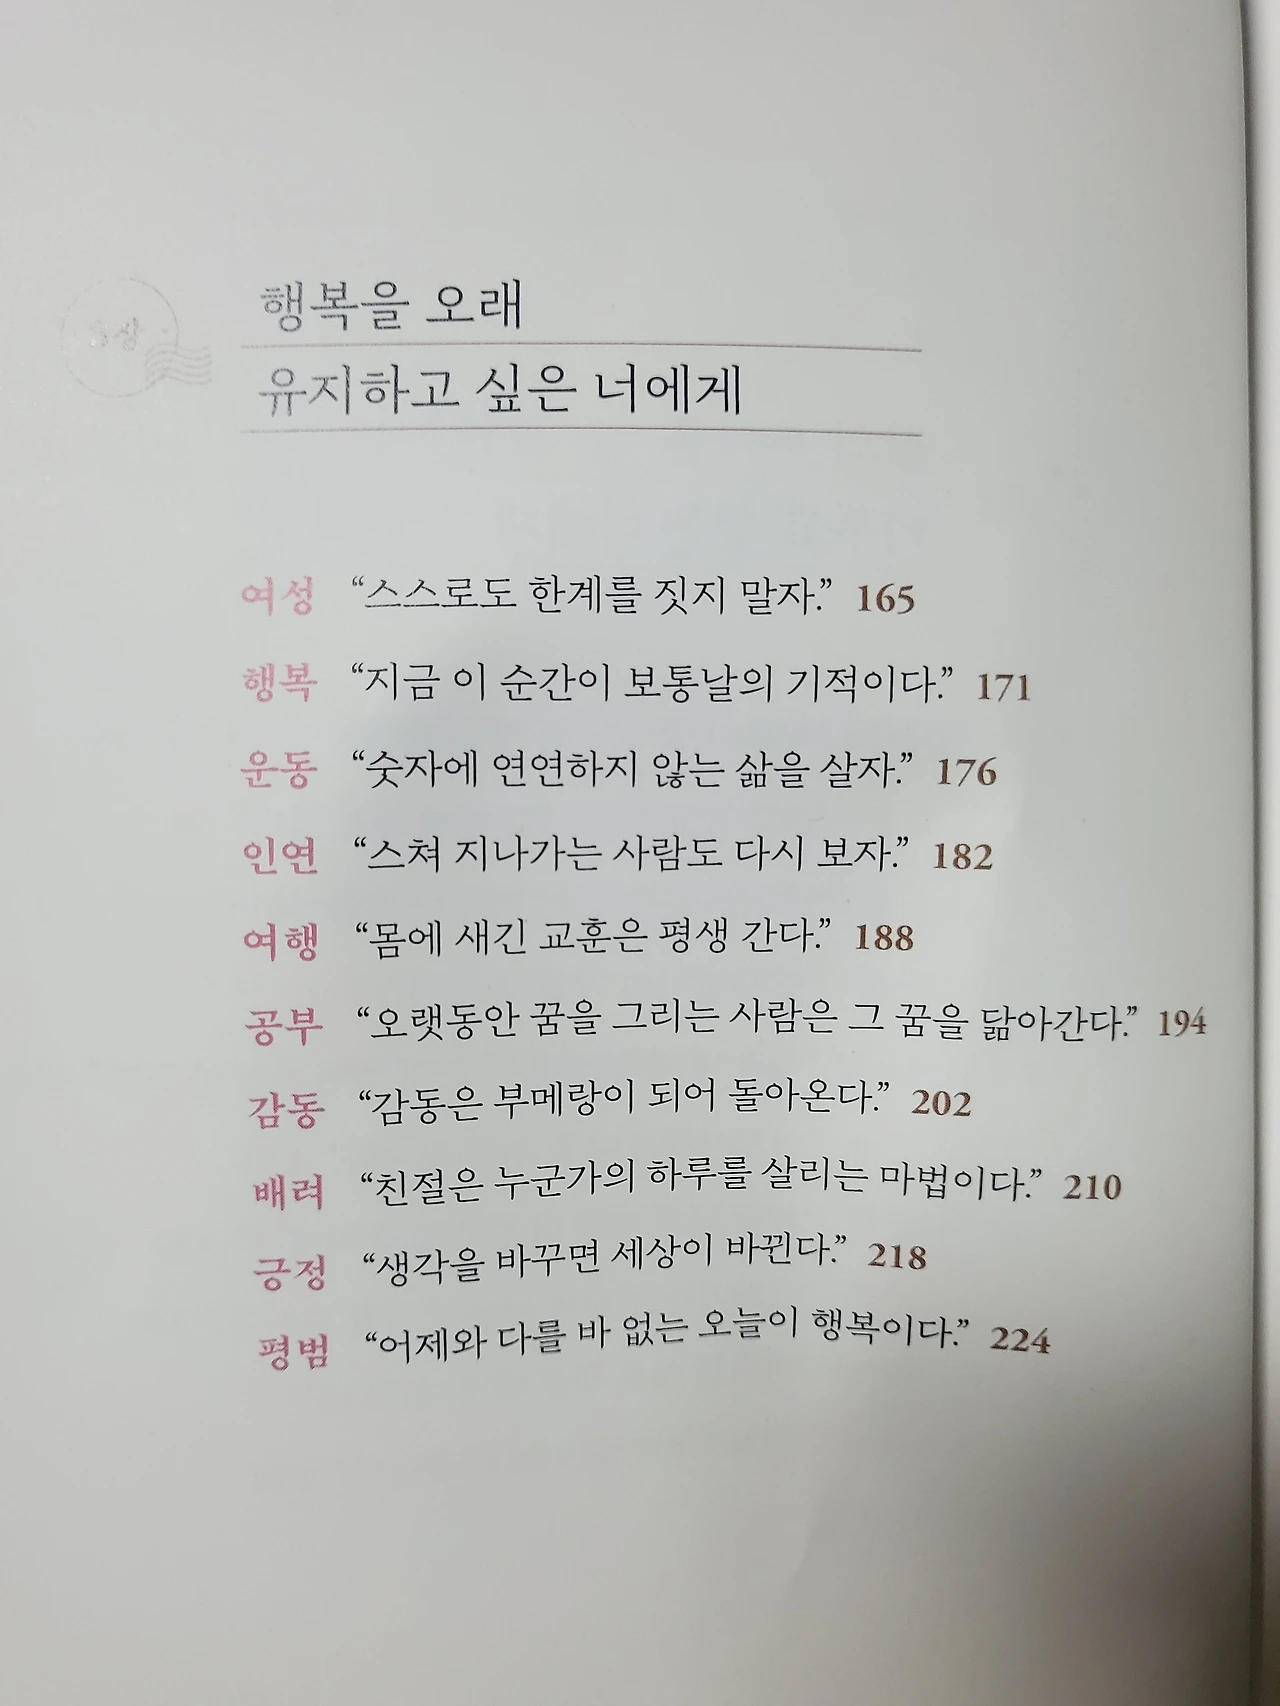 행복을 오래
유지하고 싶은 너에게
여성 “스스로도 한계를 짓지 말자.” 165
행복 “지금 이 순간이 보통날의 기적이다.” 171
운동 “숫자에 연연하지 않는 삶을 살자.” 176
인연 “스쳐 지나가는 사람도 다시 보자.” 182
여행 “몸에 새긴 교훈은 평생 간다.” 188
공부 “오랫동안 꿈을 그리는 사람은 그 꿈을 닮아간다.” 194
감동 “감동은 부메랑이 되어 돌아온다.” 202
배려 “친절은 누군가의 하루를 살리는 마법이다.” 210
긍정 “생각을 바꾸면 세상이 바뀐다.” 218
평범 “어제와 다를 바 없는 오늘이 행복이다.” 224